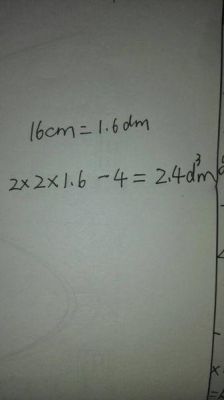 16cm=1.6dm
2×2×1.6-4=2.4dm³